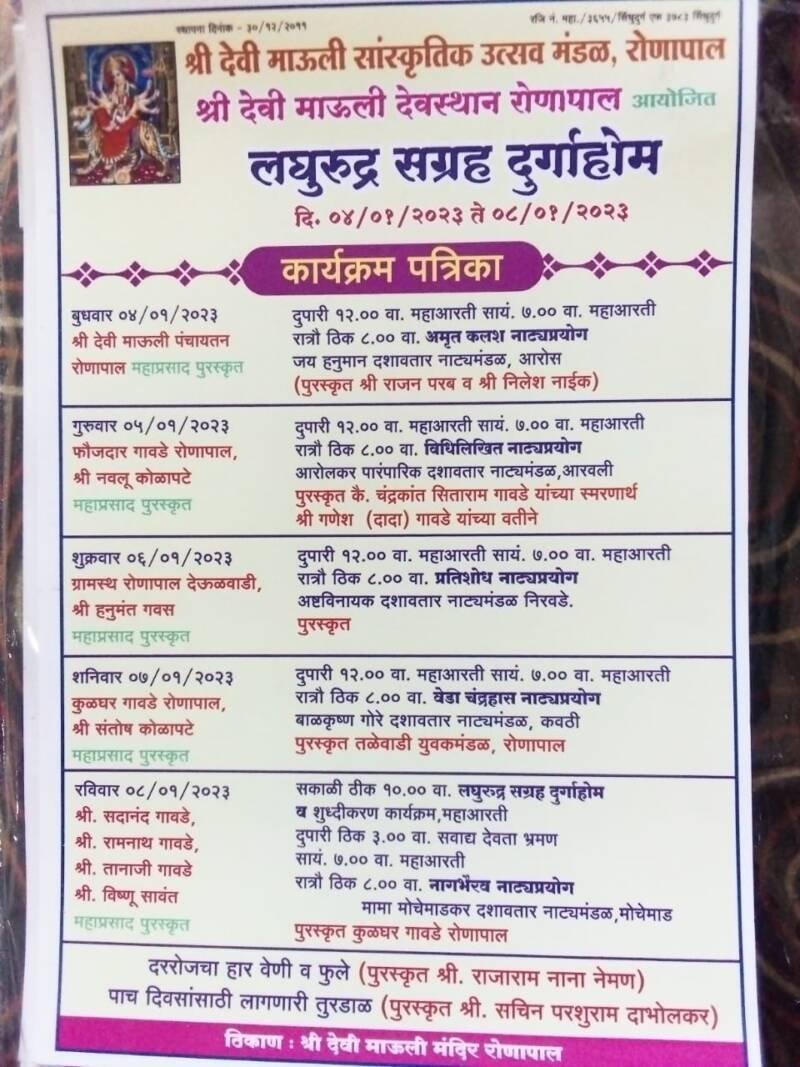 स्थापना दिनांक - ३०/१२/२०११
रजि नं. महा./३६५५/सिंधुदुर्ग एफ ३५८३ सिंधुदुर्ग
श्री देवी माऊली सांस्कृतिक उत्सव मंडळ, रोणापाल
श्री देवी माऊली देवस्थान रोणापाल आयोजित
लघुरुद्र सग्रह दुर्गाहोम
दि. ०४/०१/२०२३ ते ०८/०१/२०२३
कार्यक्रम पत्रिका
बुधवार ०४/०१/२०२३
श्री देवी माऊली पंचायतन
रोणापाल महाप्रसाद पुरस्कृत
दुपारी १२.०० वा. महाआरती सायं. ७.०० वा. महाआरती
रात्रौ ठिक ८.०० वा. अमृत कलश नाट्यप्रयोग
जय हनुमान दशावतार नाट्यमंडळ, आरोस
(पुरस्कृत श्री राजन परब व श्री निलेश नाईक)
गुरुवार ०५/०१/२०२३
फौजदार गावडे रोणापाल,
श्री नवलू कोळापटे
महाप्रसाद पुरस्कृत
दुपारी १२.०० वा. महाआरती सायं. ७.०० वा. महाआरती
रात्रौ ठिक ८.०० वा. विधिलिखित नाट्यप्रयोग
आरोलकर पारंपारिक दशावतार नाट्यमंडळ,आरवली
पुरस्कृत कै. चंद्रकांत सिताराम गावडे यांच्या स्मरणार्थ
श्री गणेश (दादा) गावडे यांच्या वतीने
शुक्रवार ०६/०१/२०२३
ग्रामस्थ रोणापाल देऊळवाडी,
श्री हनुमंत गवस
महाप्रसाद पुरस्कृत
दुपारी १२.०० वा. महाआरती सायं. ७.०० वा. महाआरती
रात्रौ ठिक ८.०० वा. प्रतिशोध नाट्यप्रयोग
अष्टविनायक दशावतार नाट्यमंडळ निरवडे.
पुरस्कृत
शनिवार ०७/०१/२०२३
कुळघर गावडे रोणापाल,
श्री संतोष कोळापटे
महाप्रसाद पुरस्कृत
दुपारी १२.०० वा. महाआरती सायं. ७.०० वा. महाआरती
रात्रौ ठिक ८.०० वा. वेडा चंद्रहास नाट्यप्रयोग
बाळकृष्ण गोरे दशावतार नाट्यमंडळ, कवठी
पुरस्कृत तळेवाडी युवकमंडळ, रोणापाल
रविवार ०८/०१/२०२३
श्री. सदानंद गावडे,
श्री. रामनाथ गावडे,
श्री. तानाजी गावडे
श्री. विष्णू सावंत
महाप्रसाद पुरस्कृत
सकाळी ठीक १०.०० वा. लघुरुद्र सग्रह दुर्गाहोम
व शुध्दीकरण कार्यक्रम,महाआरती
दुपारी ठिक ३.०० वा. सवाद्य देवता भ्रमण
सायं. ७.०० वा. महाआरती
रात्रौ ठिक ८.०० वा. नागभैरव नाट्यप्रयोग
मामा मोचेमाडकर दशावतार नाट्यमंडळ,मोचेमाड
पुरस्कृत कुळघर गावडे रोणापाल
दररोजचा हार वेणी व फुले (पुरस्कृत श्री. राजाराम नाना नेमण)
पाच दिवसांसाठी लागणारी तुरडाळ (पुरस्कृत श्री. सचिन परशुराम दाभोलकर)
ठिकाण : श्री देवी माऊली मंदिर रोणापाल